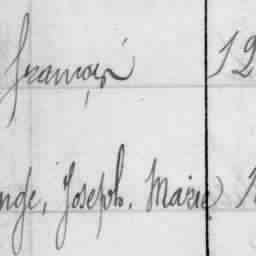 François 12
nge, Joseph, Marie